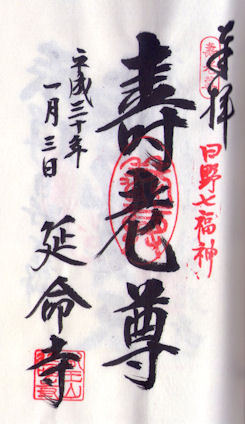 奉拝
日野七福神
壽老尊
平成三十年
一月三日
延命寺